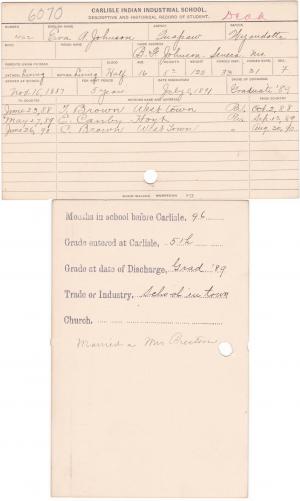 6070
CARLISLE INDIAN INDUSTRIAL SCHOOL.
DESCRIPTIVE AND HISTORICAL RECORD OF STUDENT.
Dead
NUMBER ENGLISH NAME AGENCY NATION
Eva A Johnson Quapaw Wyandotte
BAND INDIAN NAME HOME ADDRESS
B. F. Johnson, Seneca, Mo
PARENTS LIVING OR DEAD BLOOD AGE HEIGHT WEIGHT FORCED INSP. FORCED EXPR. SEX
living living Half 16 120 33 31 F
ARRIVED AT SCHOOL FOR WHAT PERIOD DATE DISCHARGED CAUSE OF DISCHARGE
Nov. 16, 1887 5 years July 8, 1891 Graduate '89
TO COUNTRY PATRONS NAME AND ADDRESS FROM COUNTRY
June 22, 88 T. Brown West town Pa. Oct 2, 88
May 17, 89 E. Canby Pa. Sep 12, 89
June 26, 90 C. Brown West Town Aug 20, 90
Months in school before Carlisle, 96
Grade entered at Carlisle, 5th
Grade at date of Discharge, Grad '89
Trade or Industry, School in town
Church,
Married a Mr Preston